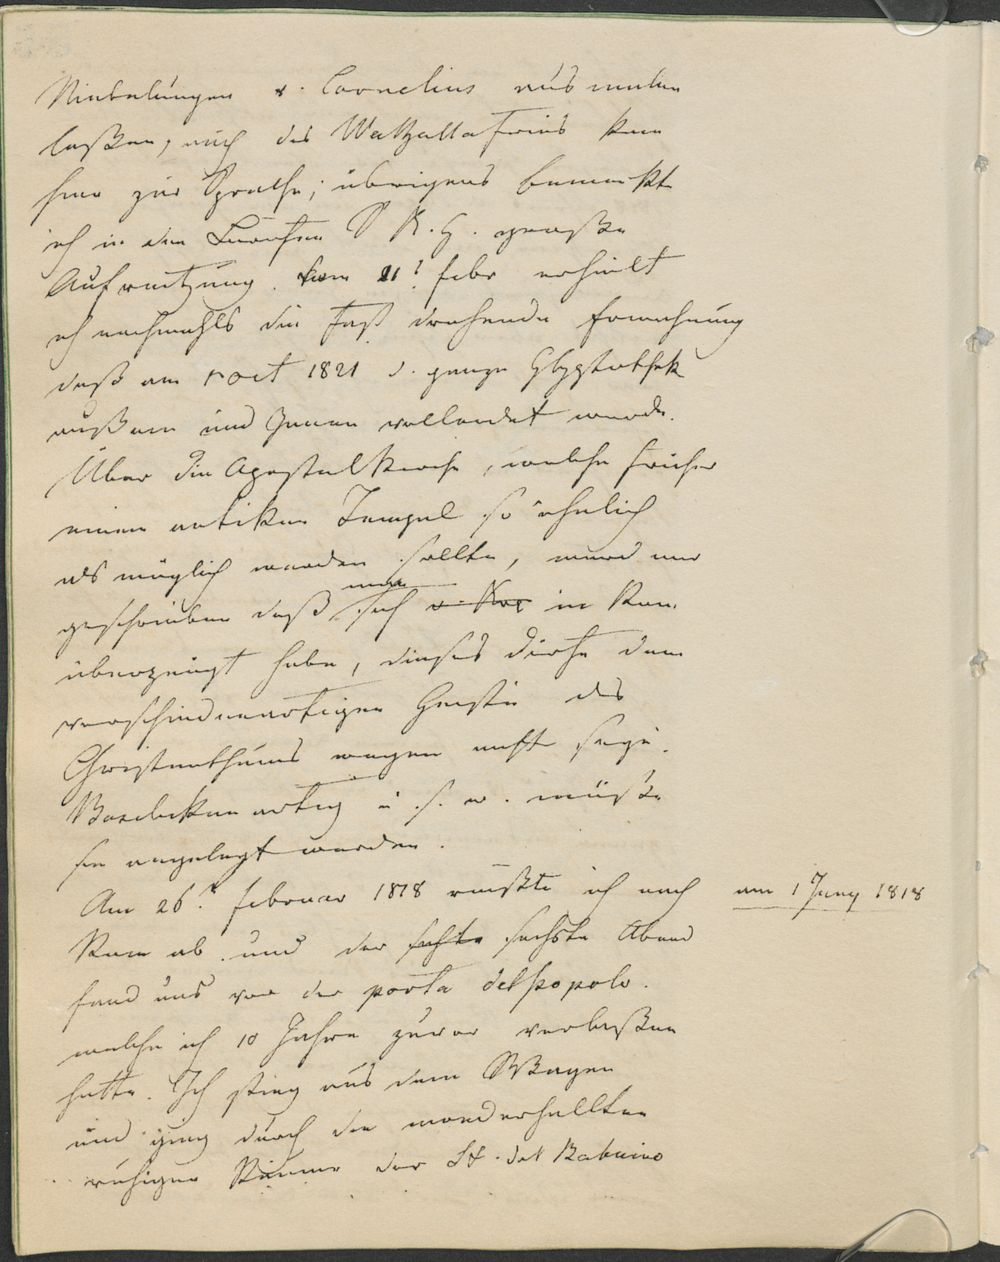 Niebelungen v. Cornelius ausmalen
laßen, auch das Walhallafries kam
hier zur Sprache; übrigens bemerkte
ich in den S K. H. große
Aufreitzung. dem 21t febr erhielt
ich nachmahls die fast drohende Ermahnung
daß am 1 oct 1821 d. ganze Glyptothek
außen und Innen vollendet werde.
Über die Apostelkirche, welche früher
einem antiken Tempel so ähnlich
als möglich werden sollte, ward mir
geschrieben daß man sich v. Kos in Rom
überzeugt habe, dieses dürfe dem
verschiedenartigen Geiste des
Christenthums wegen nicht seyn.
Basilikenartig u. s. w. müßte
sie angelegt werden.
Am 26t februar 1818 reißte ich nach
am 1 Juny 1818
Rom ab und der sechste Abend
fand uns vor der porta del popolo.
welche ich 10 Jahre zuvor verlaßen
hatte. Ich stieg aus dem Wagen
und ging durch die monderhellten
ruhigen Räume der St. del Babuino